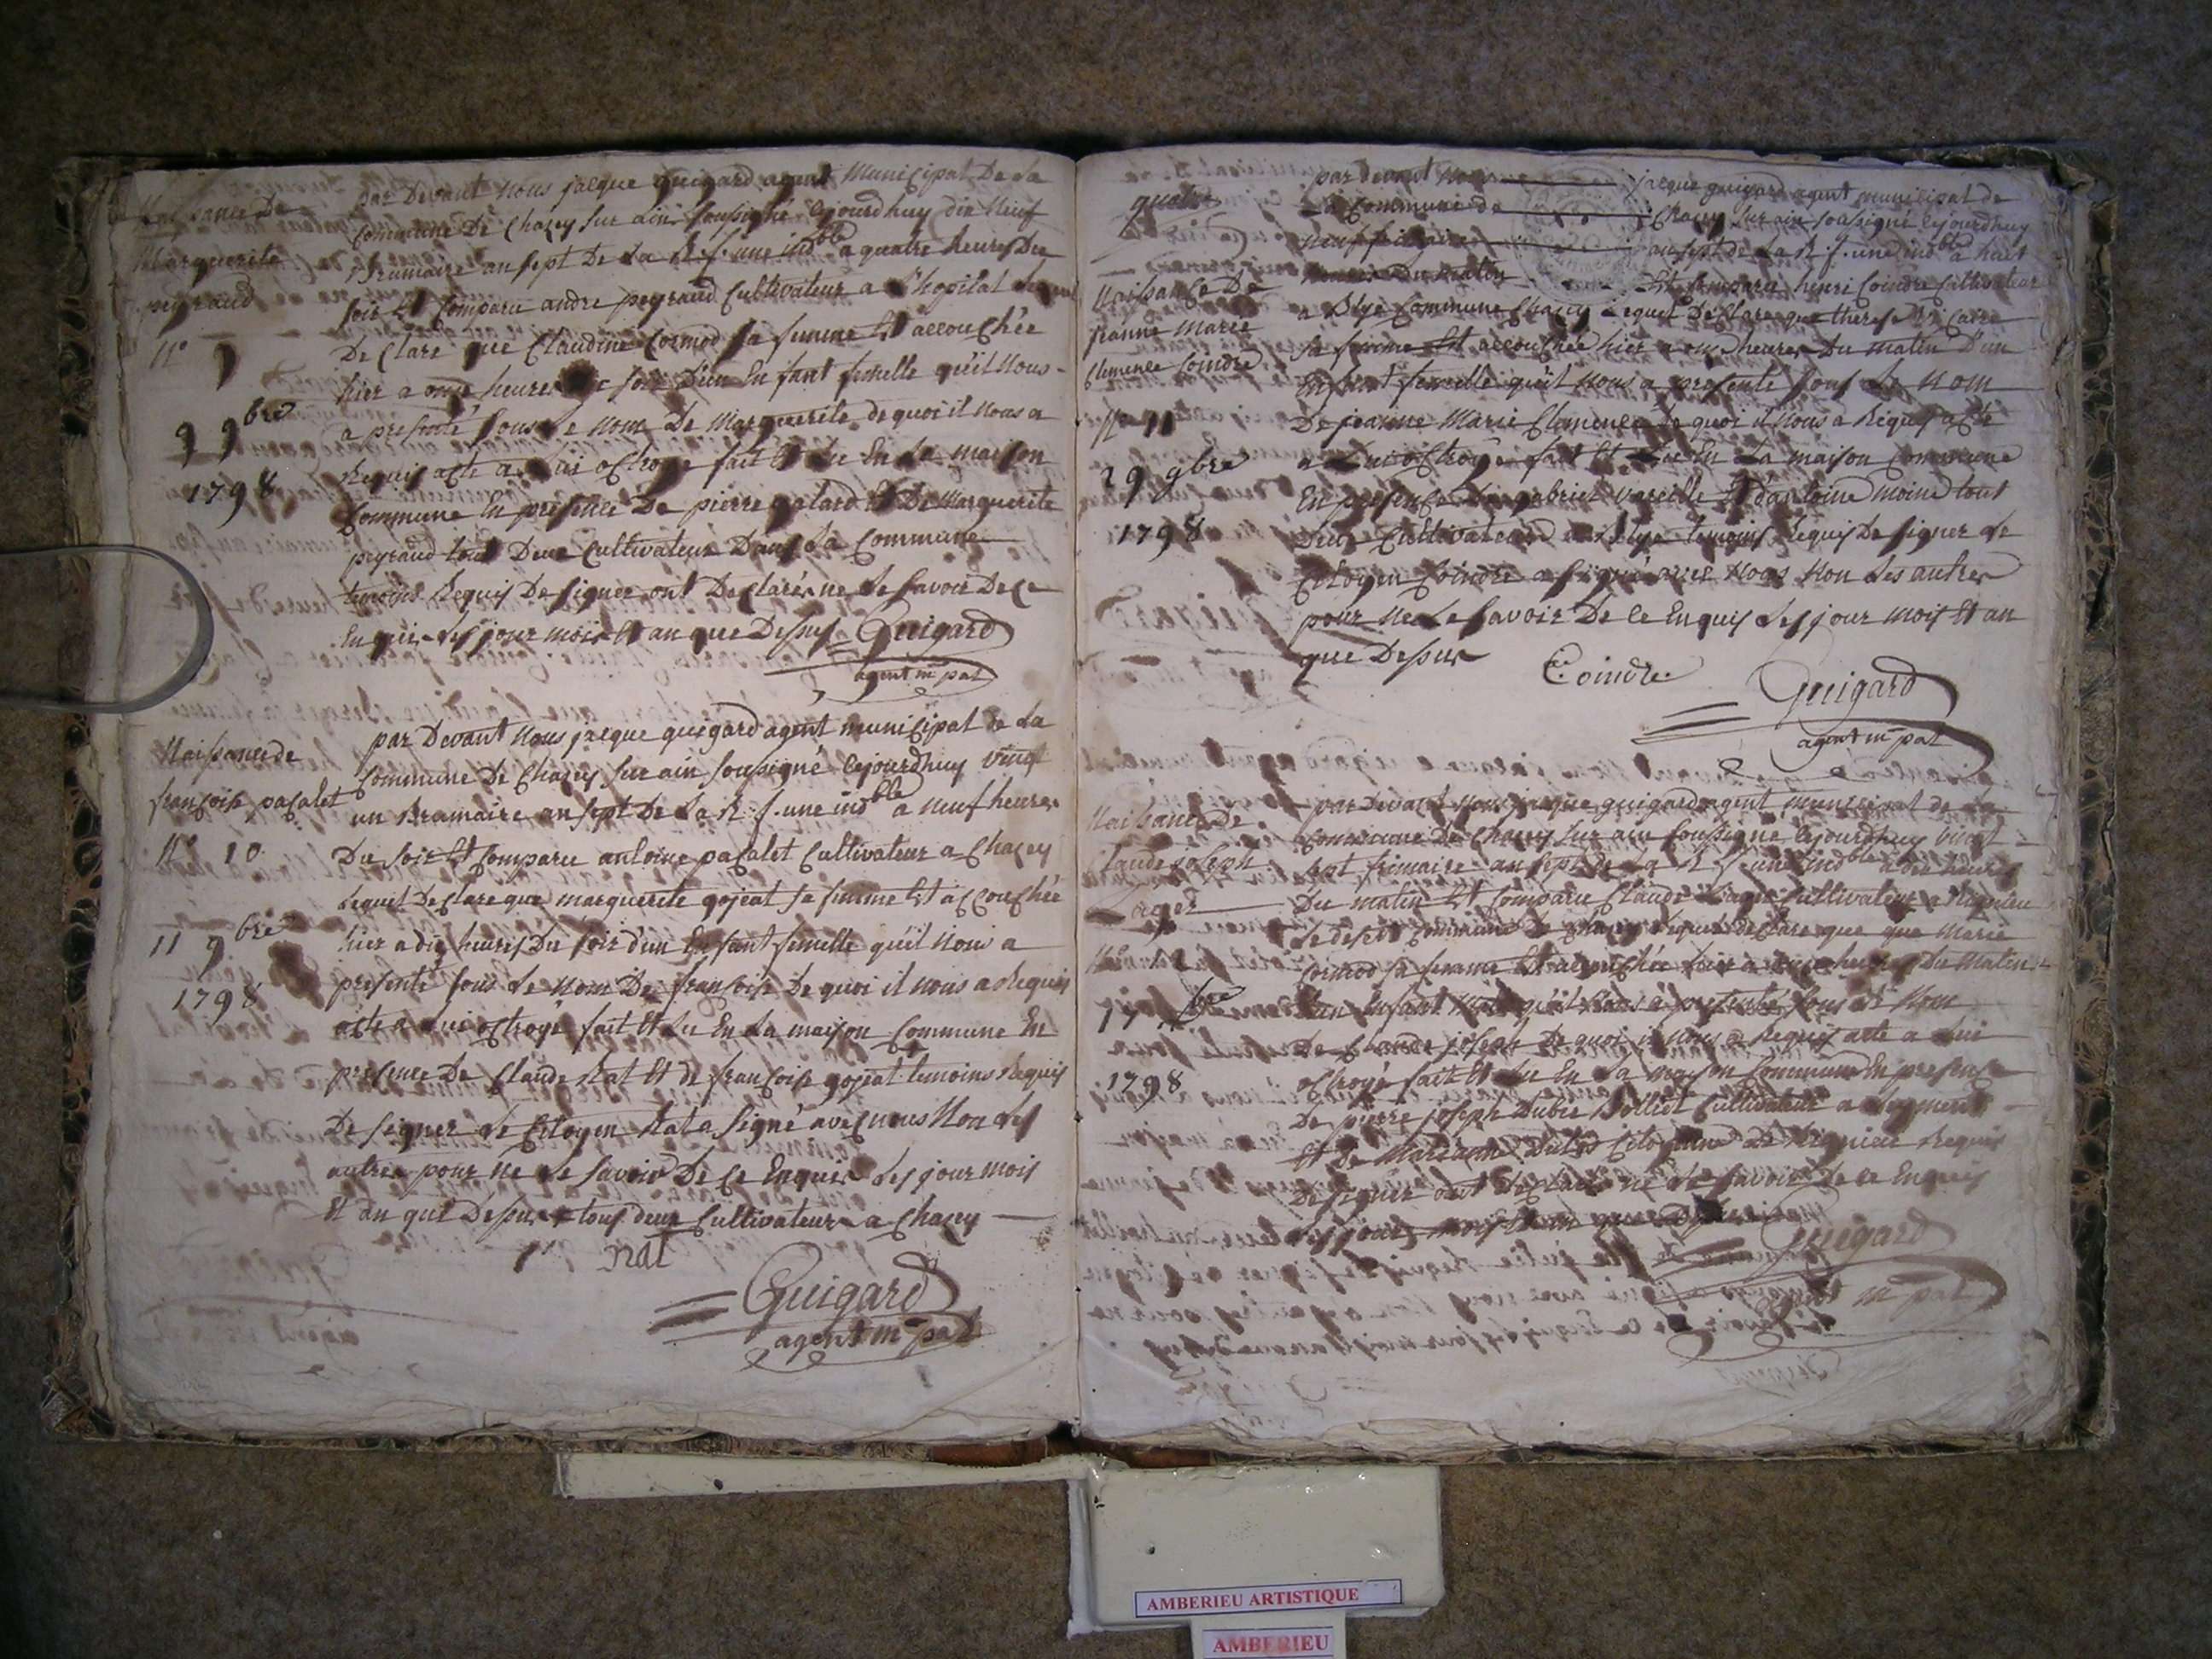 Naissance De
Marguerite
peyraud
N° 9
9 9bre
1798
par Devant nous jacque guigard agent Municipal De La
Commune De Chazey sur ain soussigné cejourdhuy dix Neuf
Brumaire an sept De La R. f. une indble a quatre heures Du
soir Est Comparu andre peyraud Cultivateur a L'hopital
De Clare que Claudine Cormod sa femme Est accouchée
hier a onze heures soir D'un Enfant femelle qu'il Nous
a presenté sous Le nom De Marguerite de quoi il nous a
Requis acte a Lui octroyé fait Et Lu En La maison
Commune En presence De pierre galard Et De Marguerite
peyraud tout Deux Cultivateur Dans La Commune
temoins Requis De signer ont Declaré ne Le savoir De Ce
Enquis Les jour mois Et an que Dessus Guigard
agent m pal
Naissance de
françoise paCalet
N° 10
11 9bre
1798
par Devant Nous jacque guigard agent municipal de La
Commune De Chazey sur ain soussigné Cejourdhuy vingt
un Brumaire an sept De La R. f. une indble a neuf heures
Du soir Est Comparu antoine paCalet Cultivateur a Chazey
Lequel Declare que marguerite gojeat sa femme Est accouchée
hier a dix heures Du soir d'un Enfant femelle qu'il Nous a
presenté sous Le Nom De françoise De quoi il nous a Requis
acte a Lui octroyé fait Et Lu En La maison Commune En
presence De Claude Nat Et de françoise gojeat temoins Requis
De signer Le Citoyen Nat a signé avec nous Non Les
autres pour Ne Le savoir De Ce Enquis Les jour mois
Et an que Dessus tous deux Cultivateurs a Chazey
Nat
Guigard
agent m pal
quatre
Naissance De
jeanne Marie
Clemence Coindre
N° 11
29 9bre
1798
par devant Nous jacque guigard agent municipal de
La Commune de Chazey sur ain soussigné cejourdhuy
neuf frimaire an sept de La R. f. une indble a huit
heures Du matin Est Comparu henri Coindre Cultivateur
a Blye Commune Chazey Lequel DeClare que therese
sa femme Est accouchée hier a onze heures Du matin D'un
Enfant femelle qu'il Nous a presenté sous Le Nom
De jeanne Marie Clemence De quoi il Nous a Requis acte
a Lui octroyé fait Et Lu En La maison Commune
En presence De gabriel vareille Et d'antoine moine tout
Deux Cultivateurs a Blye temoins Requis De signer Le
Citoyen Coindre a signé avec Nous Non Les autres
pour Ne Le savoir De Ce Enquis Les jour mois Et an
que Dessus
Coindre
Guigard
agent m pal
Naissance De
Claude joseph
N°
17 bre
1798
par Devant Nous jacque guigard agent municipal de La
Commune De Chazey sur ain soussigné Cejourdhuy vingt
sept frimaire an sept de La R f une indble a dix heures
Du matin Est Comparu Claude Cultivateur a Rignieu
Le desert Commune De Chazey Lequel declare que que Marie
Cormod sa femme Est accouchée hier a heures Du Matin
D'un Enfant Male qu'il Nous a presenté sous Le Nom
De Claude joseph De quoi il nous a Requis acte a Lui
octroyé fait Et Lu En La Maison Commune En presence
De pierre joseph Dubie Cultivateur a
Et de Marianne Citoyenne De Rignieu Requis
De signer ont Declaré ne Le savoir De Ce Enquis
Les jour mois Et an que Dessus Guigard
m pal
AMBERIEU ARTISTIQUE
AMBERIEU